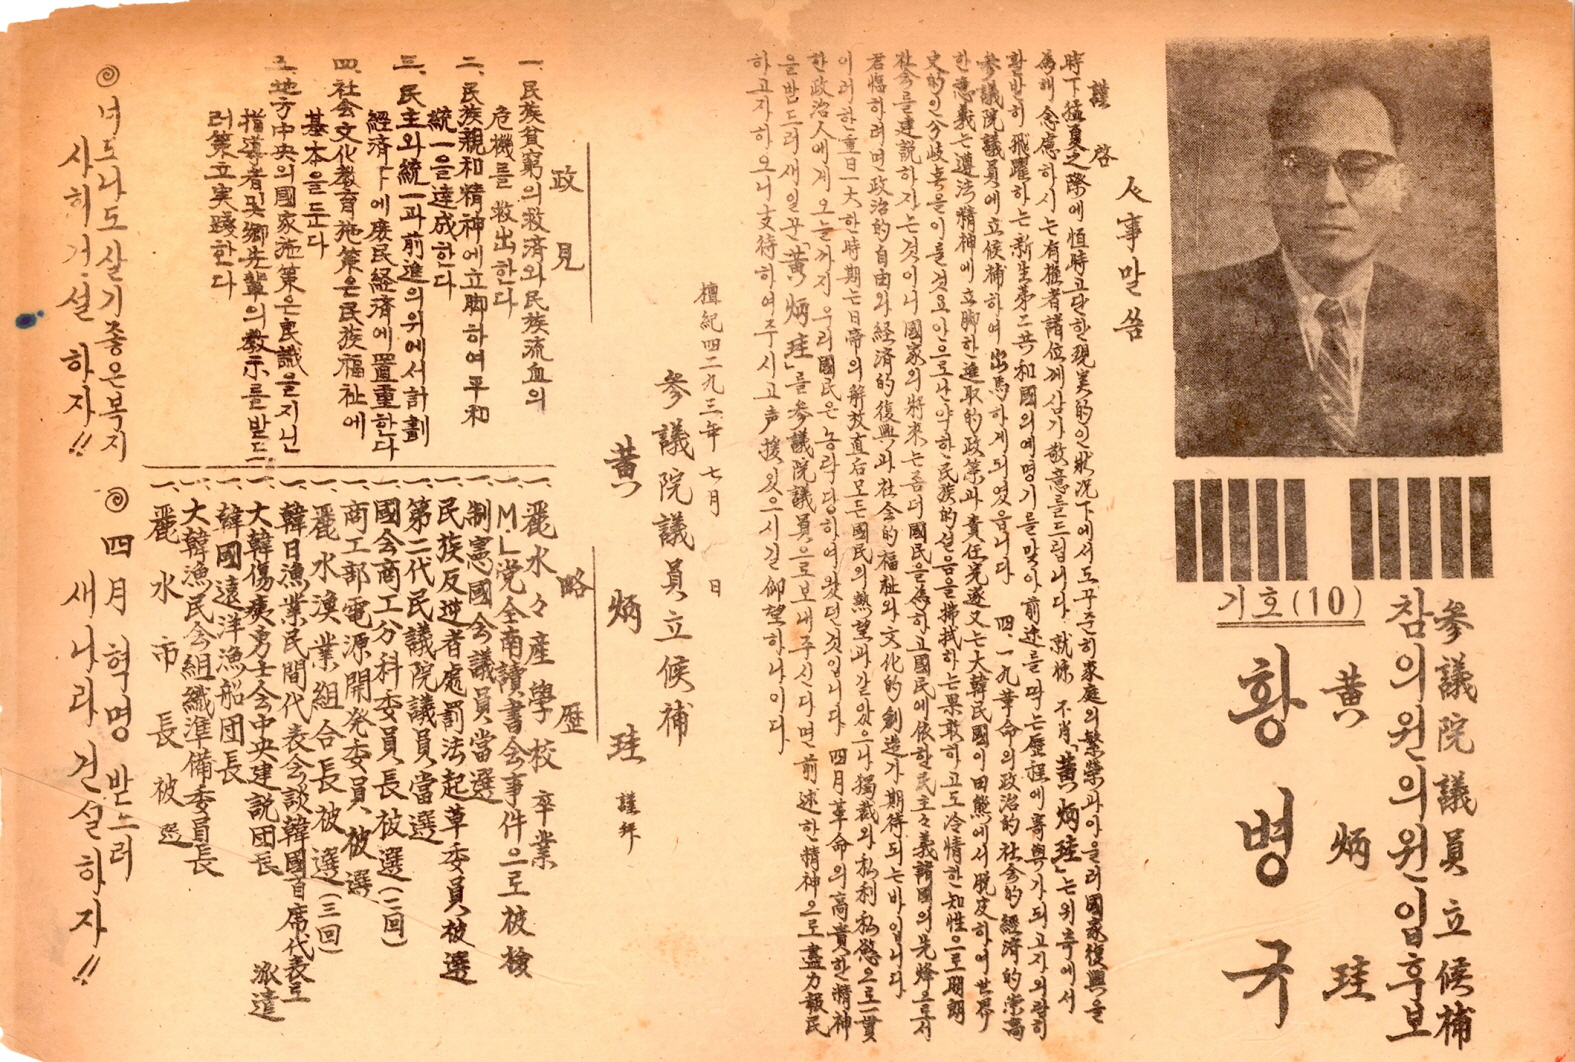 參議院議員立候補
참의원의원입후보
기호(10)
黃炳珪
황병국
人事말씀
謹啓
時下猛夏之際에 恒時고단한現実的인狀況下에서도꾸준히家庭의繁榮과아울러國家復興을
為해 念慮하시는有權者諸位께삼가敬意를드립니다. 就悚 不肖「黃炳珪」는위측에서
활발히 飛躍하는新生第二共和國의예명기를맞아前述를딱는歷程에寄與가되고자의람히
參議院議員에立候補하여 出馬하게되엿읍니다 四‧一九革命의政治的社会的經済的崇高
한意義는遵法精神에立脚한進取的政策과責任完遂又는大韓民國이旧態에서脫皮하여世界
史的인分岐奌을이를것요안으로난약한民族的설음을拂拭하는果敢하고도冷情한知性으로明朗
社会를建説하자는것이니 國家의將來는좀더國民을為하고國民에依한民主主義諸國의先烽으로서
君臨하려면政治的自由와経済的復興과社会的福祉와文化的創造가期待되는바입니다.
이러한重且大한時期는日帝의解放直后모든國民의熱望과갈았으나獨裁와私利私慾으로一貫
한政治人에게오늘까지우리國民은농락당하여왔던것입니다 四月革命의高貴한精神
을받드러새일꾼「黃炳珪」를參議院議員으로보내주신다면前述한精神으로盡力報民
하고자하오니支待하여주시고声援있으시길仰望하나이다
檀紀四二九三年七月 日
參議院議員立候補
黃炳珪 謹拜
政見
一、民族貧窮의救済와民族流血의
危機를救出한다
二、民族親和精神에立脚하여平和
統一을達成한다
三、民主와統一과前進의위에서計劃
經済下에庶民経済에置重한다
四、社会文化教育施策은民族福祉에
基本을둔다
五、地方中央의國家施策은良識을지닌
指導者및鄉先輩의教示를받드
러策立実踐한다
略歷
一、麗水々産學校卒業
一、ML党全南讀書会事件으로被檢
一、制憲國会議員當選
一、民族反逆者處罰法起草委員被選
一、第二代民議院議員當選
一、國会商工分科委員長被選(二回)
一、商工部電源開発委員被選
一、麗水漁業組合長被選(三回)
一、韓日漁業民間代表会談韓國首席代表로
派遣
一、大韓傷痍勇士会中央建説团長
一、韓國遠洋漁船团長
一、大韓漁民会組織準備委員長
一、麗水市長被選
◎너도나도살기좋은복지
사회거설하자!!
◎四月혁명받드러
새나라건설하자!!